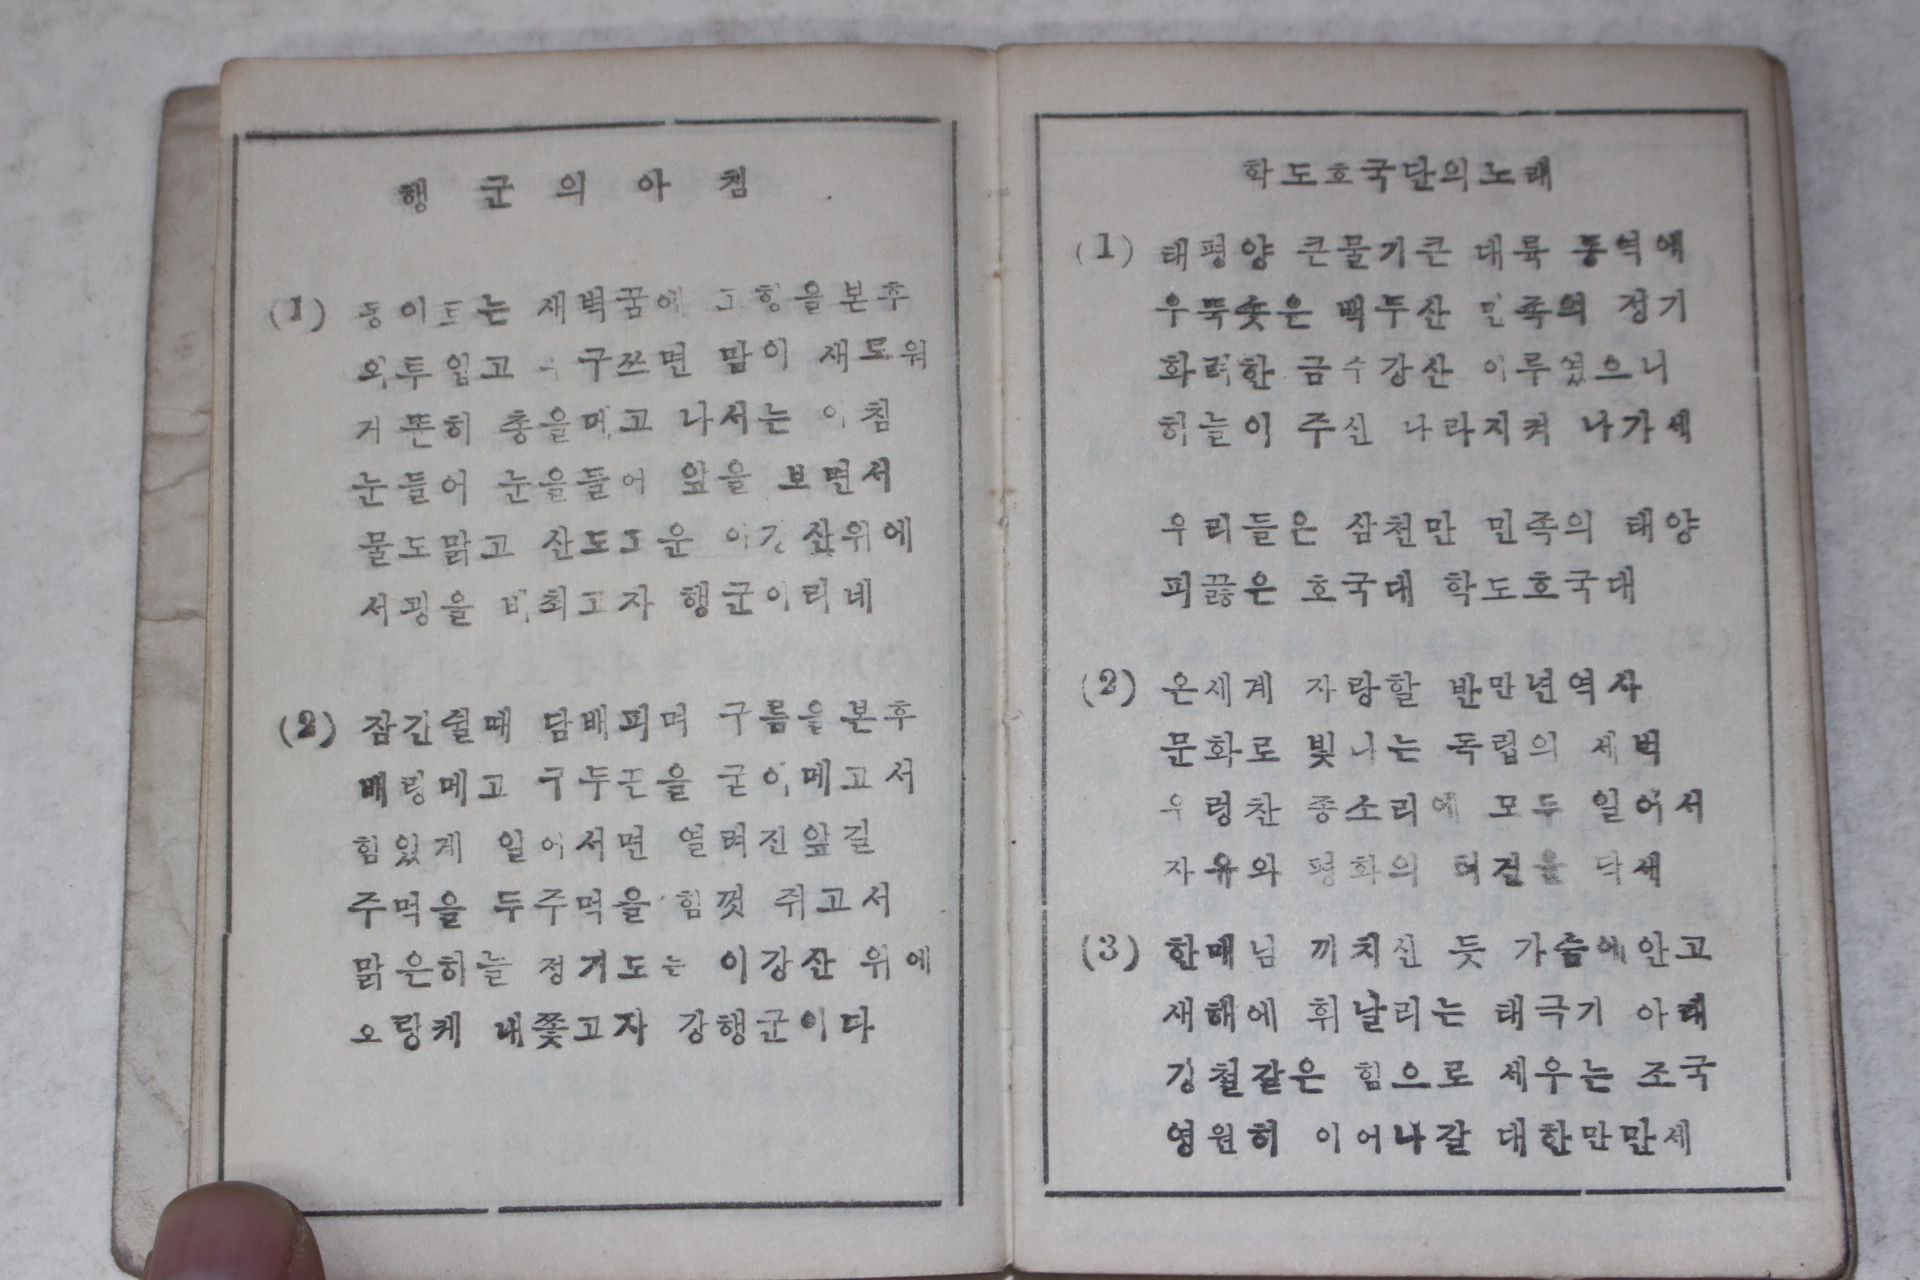 행군의아침
(1) 동이트는 새벽꿈에 고향을본후
외투입고 구쓰면 맘이 새로워
거뜬히 총을메고 나서는 아침
눈들어 눈을들어 앞을 보면서
물도맑고 산도고운 이강산위에
서광을 비최고자 행군이라네
(2) 잠간쉴때 담배피며 구름을본후
배랑메고 구두끈을 굳이메고서
힘있게 일어서면 열려진앞길
주먹을 두주먹을 힘껏 쥐고서
맑은하늘 정기도는 이강산 위에
오랑케 내쫓고자 강행군이다
학도호국단의노래
(1) 태평양 큰물기큰 대륙 동역에
우뚝솟은 백두산 민족의 정기
화려한 금수강산 이루웠으니
하늘이 주신 나라지켜 나가세
우리들은 삼천만 민족의 태양
피끓은 호국대 학도호국대
(2) 온세계 자랑할 반만년역사
문화로 빛나는 독립의 새벽
우렁찬 종소리에 모두 일어서
자유와 평화의 터전을 닥세
(3) 한배님 끼치신 뜻 가슴에안고
새해에 휘날리는 태극기 아래
강철같은 힘으로 세우는 조국
영원히 이어나갈 대한만만세